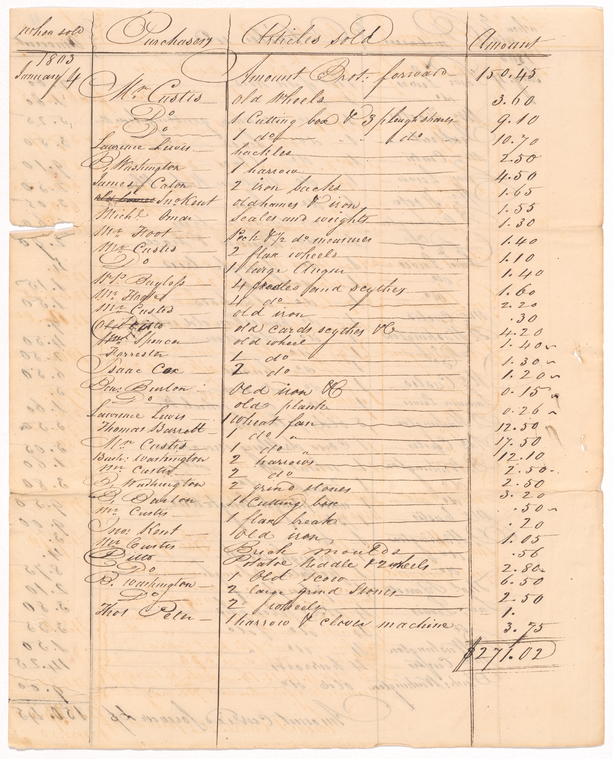 when sold Purchasers Articles sold Amount
1803
January 4 Amount Brot. forward 150.45
Mr. Custis old Wheels 3.60
Do 1 Cutting box & 3 plough shares 9.10
Do 1 do do 10.70
Lawrence Lewis hackles 2.50
B. Washington 1 harrow 4.50
James Caton 2 iron Jacks 1.65
Jno Kent old hames & iron 1.55
Michl. scales and weights 1.30
Mr. Foot Peck & 1/2 do measures 1.40
Mr. Custis 2 flax wheels 1.10
Do 1 large Auger 1.40
Wm. 4 and scythes 1.60
Mr. 4 do 2.20
Mr. Custis old iron .30
old cards scythes &C 4.20
Spencer old wheel 1.40
1 do 1.30
Isaac Cox 2 do 1.20
Burton Old iron &C 0.15
Do old plank 0.26
Lawrence Lewis 1 Wheat fan 12.50
Thomas Barrett 1 do 17.50
Mr. Custis 1 do 12.10
Bush. Washington 2 harrows 2.50
Mr Custis 2 do 2.50
B. Washington 2 grind stones 3.20
B. Burton 1 Cutting box .50
Mr. Custis 1 flax break .20
Jno. Kent Old iron 1.05
Mr Custis Brick moulds .56
Ditto Potatoe Riddle & 2 wheels 2.80
Do 1 Old Scow 6.50
B. Washington 2 large grind Stones 2.50
Do 2 wheels 1.
Thos Peter 1 harrow & clover machine 3.75
$271.02